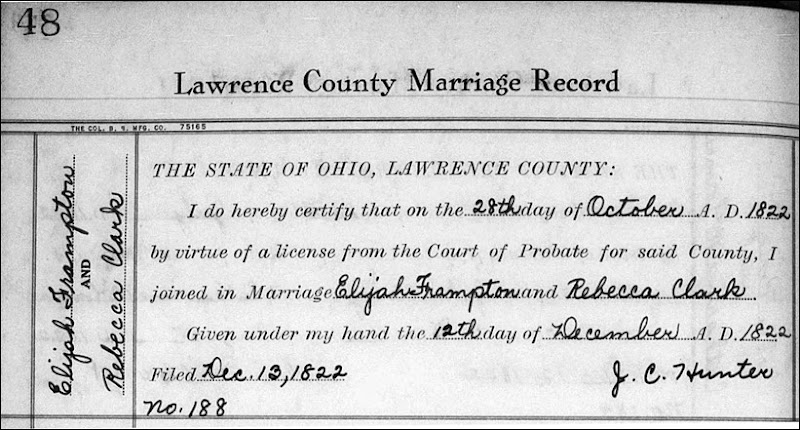 48
Lawrence County Marriage Record
THE COL. B. B. MFG. CO. 75165
Elijah Frampton
AND
Rebecca Clark
THE STATE OF OHIO, LAWRENCE COUNTY:
I do hereby certify that on the 28th day of October A. D. 1822
by virtue of a license from the Court of Probate for said County, I
joined in Marriage Elijah Frampton and Rebecca Clark
Given under my hand the 12th day of December A. D. 1822
Filed Dec. 13, 1822 J. C. Hunter
No. 188